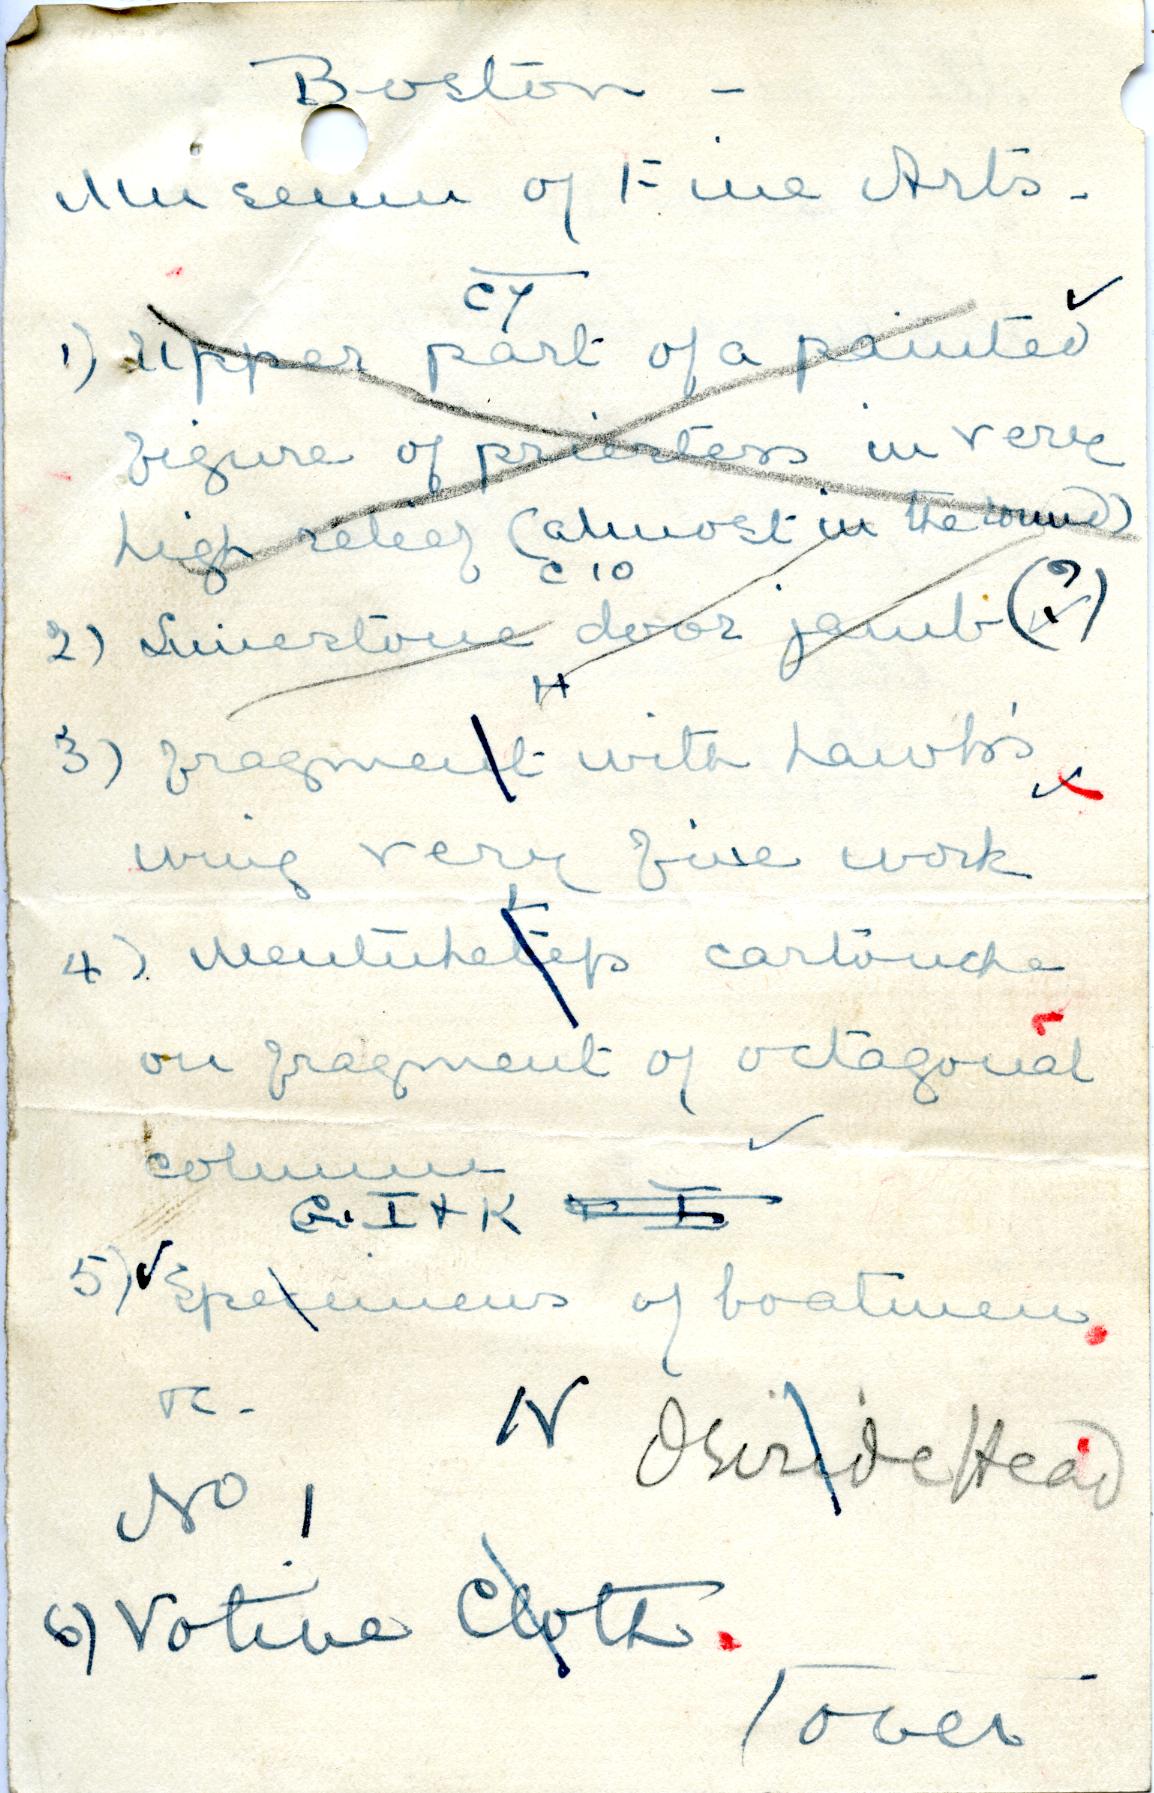 Boston -
Museum of Fine Arts -
C7
1) Upper part of a painted ✓
figure of priestess in very
high relief (almost in the round)
C 10
2) Limestone door jamb (?)
H
3) fragment with hawk's
wing very fine work
L
4) Mentuhetep's cartouche
on fragment of octagonal
column ✓
G. I + K
5) ✓ Specimens of boatmen
&c -
N Osiride Head
No 1
6) Votive Cloth.
/over